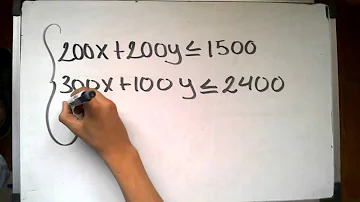 200x+200y≤1500
300x+100y≤2400